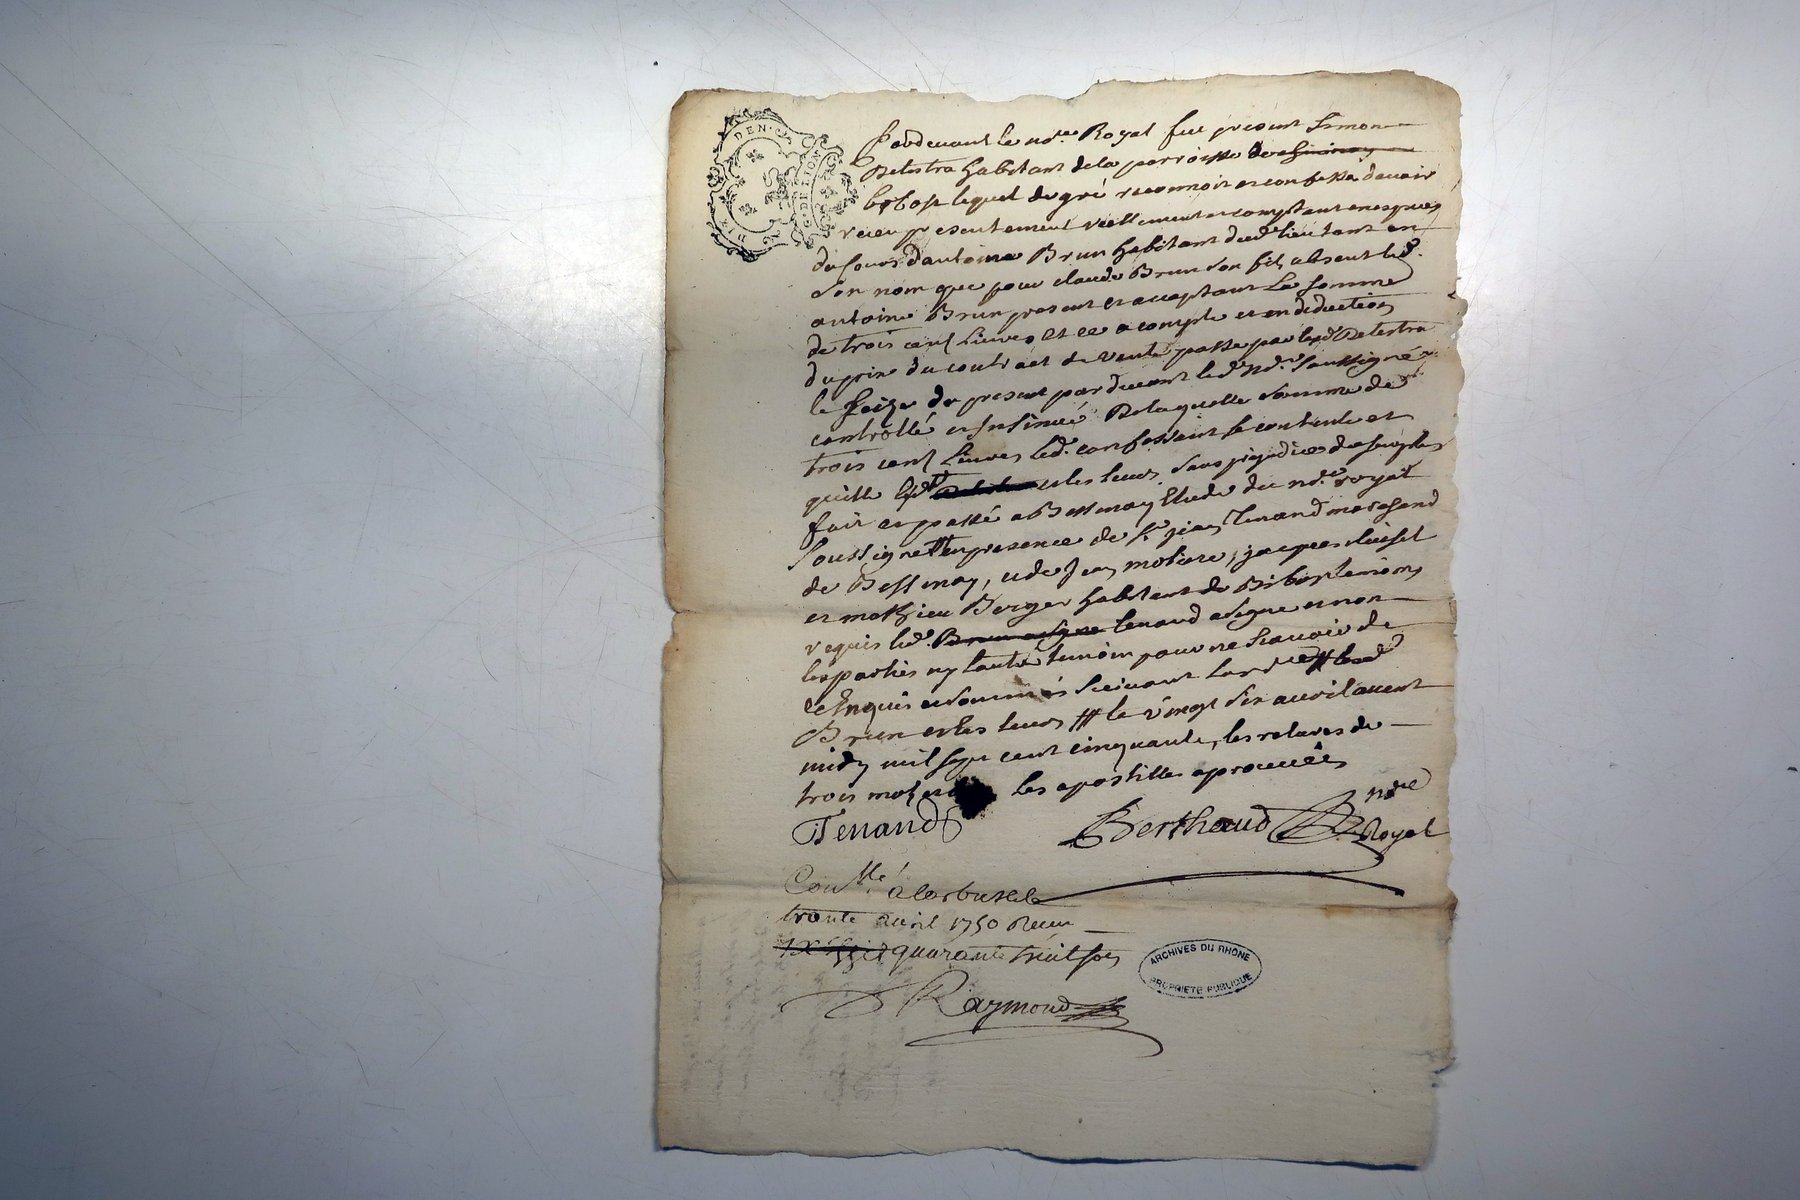 DIX DEN.
G. DE LION
Pardevant le no.re Royal fut present Simon
Delestra habitant de la parroisse de
lequel de gré reconnoit et confesse davoir
receu presentement réellement et comptant en especes
de cours dantoine Brun habitant dud. lieu tant en
son nom que pour claude Brun son fils absent led.
antoine Brun present et acceptant La somme
de trois cent Livres et ce acompte et en deduction
du prix du contract de vente passé par led. Delestra
le seize du present pardevant led. no.re soussigné
controllé et insinué De laquelle somme de
trois cent Livres led. confessant se contente et
quitte led. et les siens sans prejudice du surplus
fait et passé a Bessenay Etude du no.re royal
soussigné en presence de Sr jean Tenand marchand
de Bessenay, et de jean moliere, jacques
et mathieu Berger habitant de Bibost temoins
requis led. Brun a signé tenand a signé et non
les parties ny lautre temoin pour ne scavoir de
ce Enquis et sommés suivant lord.ce led.
Brun et les siens le vingt six avril avant
midy mil sept cent cinquante, les ratures de
trois mots et les apostilles aprouvées
Tenand
Berthaud no.re Royal
Con.llé a larbresle le
trente avril 1750 Receu
quarante huit sols
Raymond
ARCHIVES DU RHÔNE
PROPRIÉTÉ PUBLIQUE